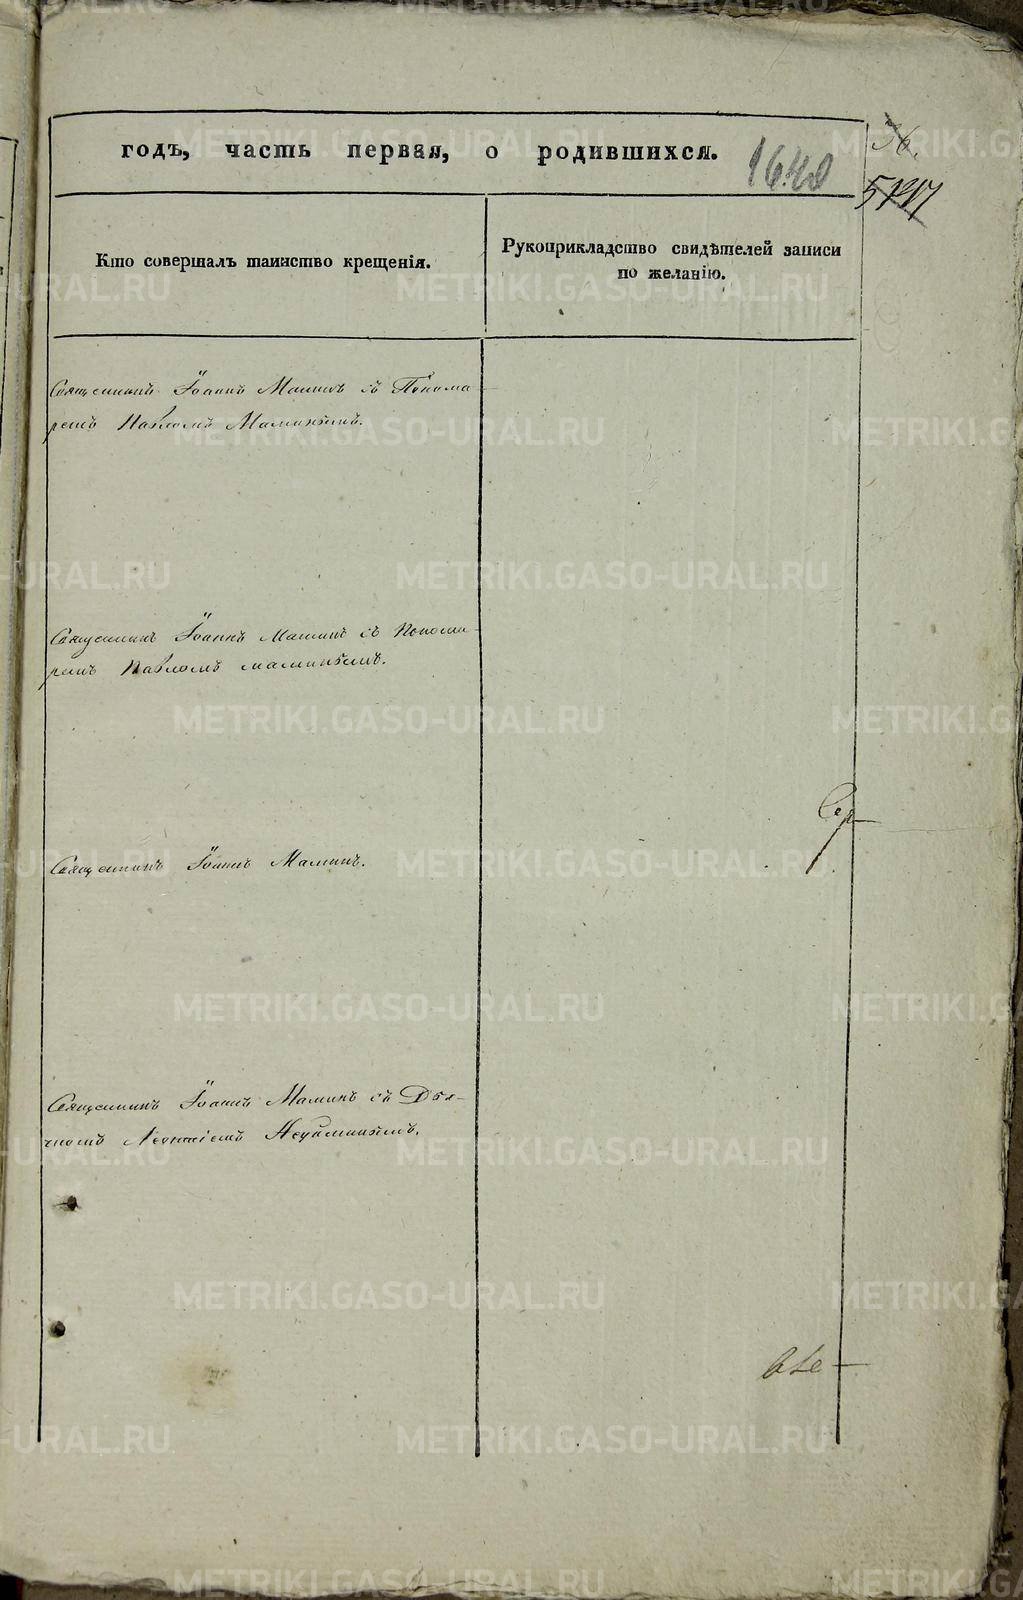 годъ, часть первая, о родившихся.
36.
Кто совершалъ таинство крещенія.
Рукоприкладство свидѣтелей записи
по желанію.
Священникъ Іоаннъ Маминъ съ Понома
ремъ Павломъ Маминымъ.
Священникъ Іоаннъ Маминъ съ Понома
ремъ Павломъ Маминымъ.
Священникъ Іоаннъ Маминъ.
Священникъ Іоаннъ Маминъ съ Дья-
чкомъ Леонтіемъ Неуйминымъ.
METRIKI.GASO-URAL.RU